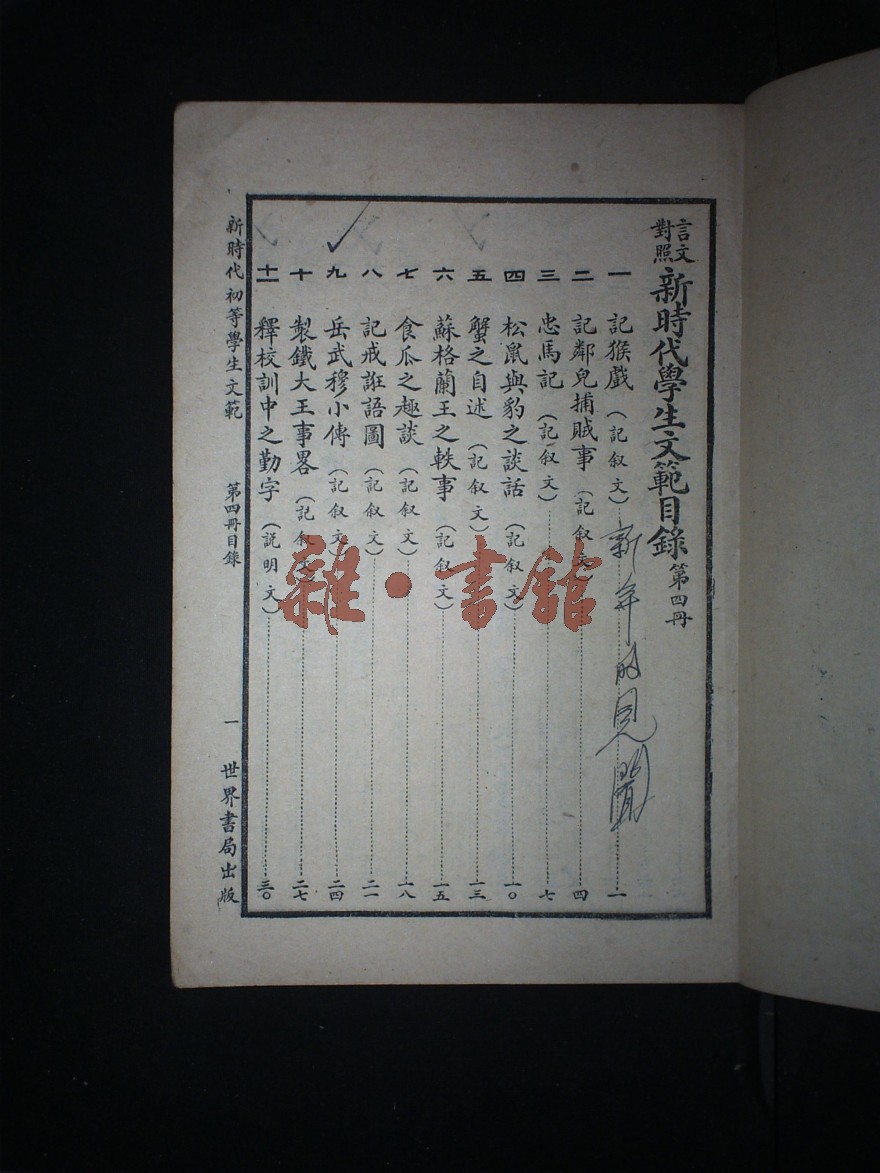 言文對照新時代學生文範目錄 第四冊
一 記猴戲（記叙文）一
新年的見聞
二 記鄰兒捕賊事（記叙文）四
三 忠馬記（記叙文）七
四 松鼠與豹之談話（記叙文）一〇
五 蟹之自述（記叙文）一三
六 蘇格蘭王之軼事（記叙文）一五
七 食瓜之趣談（記叙文）一八
八 記戒誑語圖（記叙文）二一
九 岳武穆小傳（記叙文）二四
十 製鐵大王事畧（記叙文）二七
十一 釋校訓中之勤字（説明文）三〇
新時代初等學生文範 第四冊目錄 一 世界書局出版
雜·書館